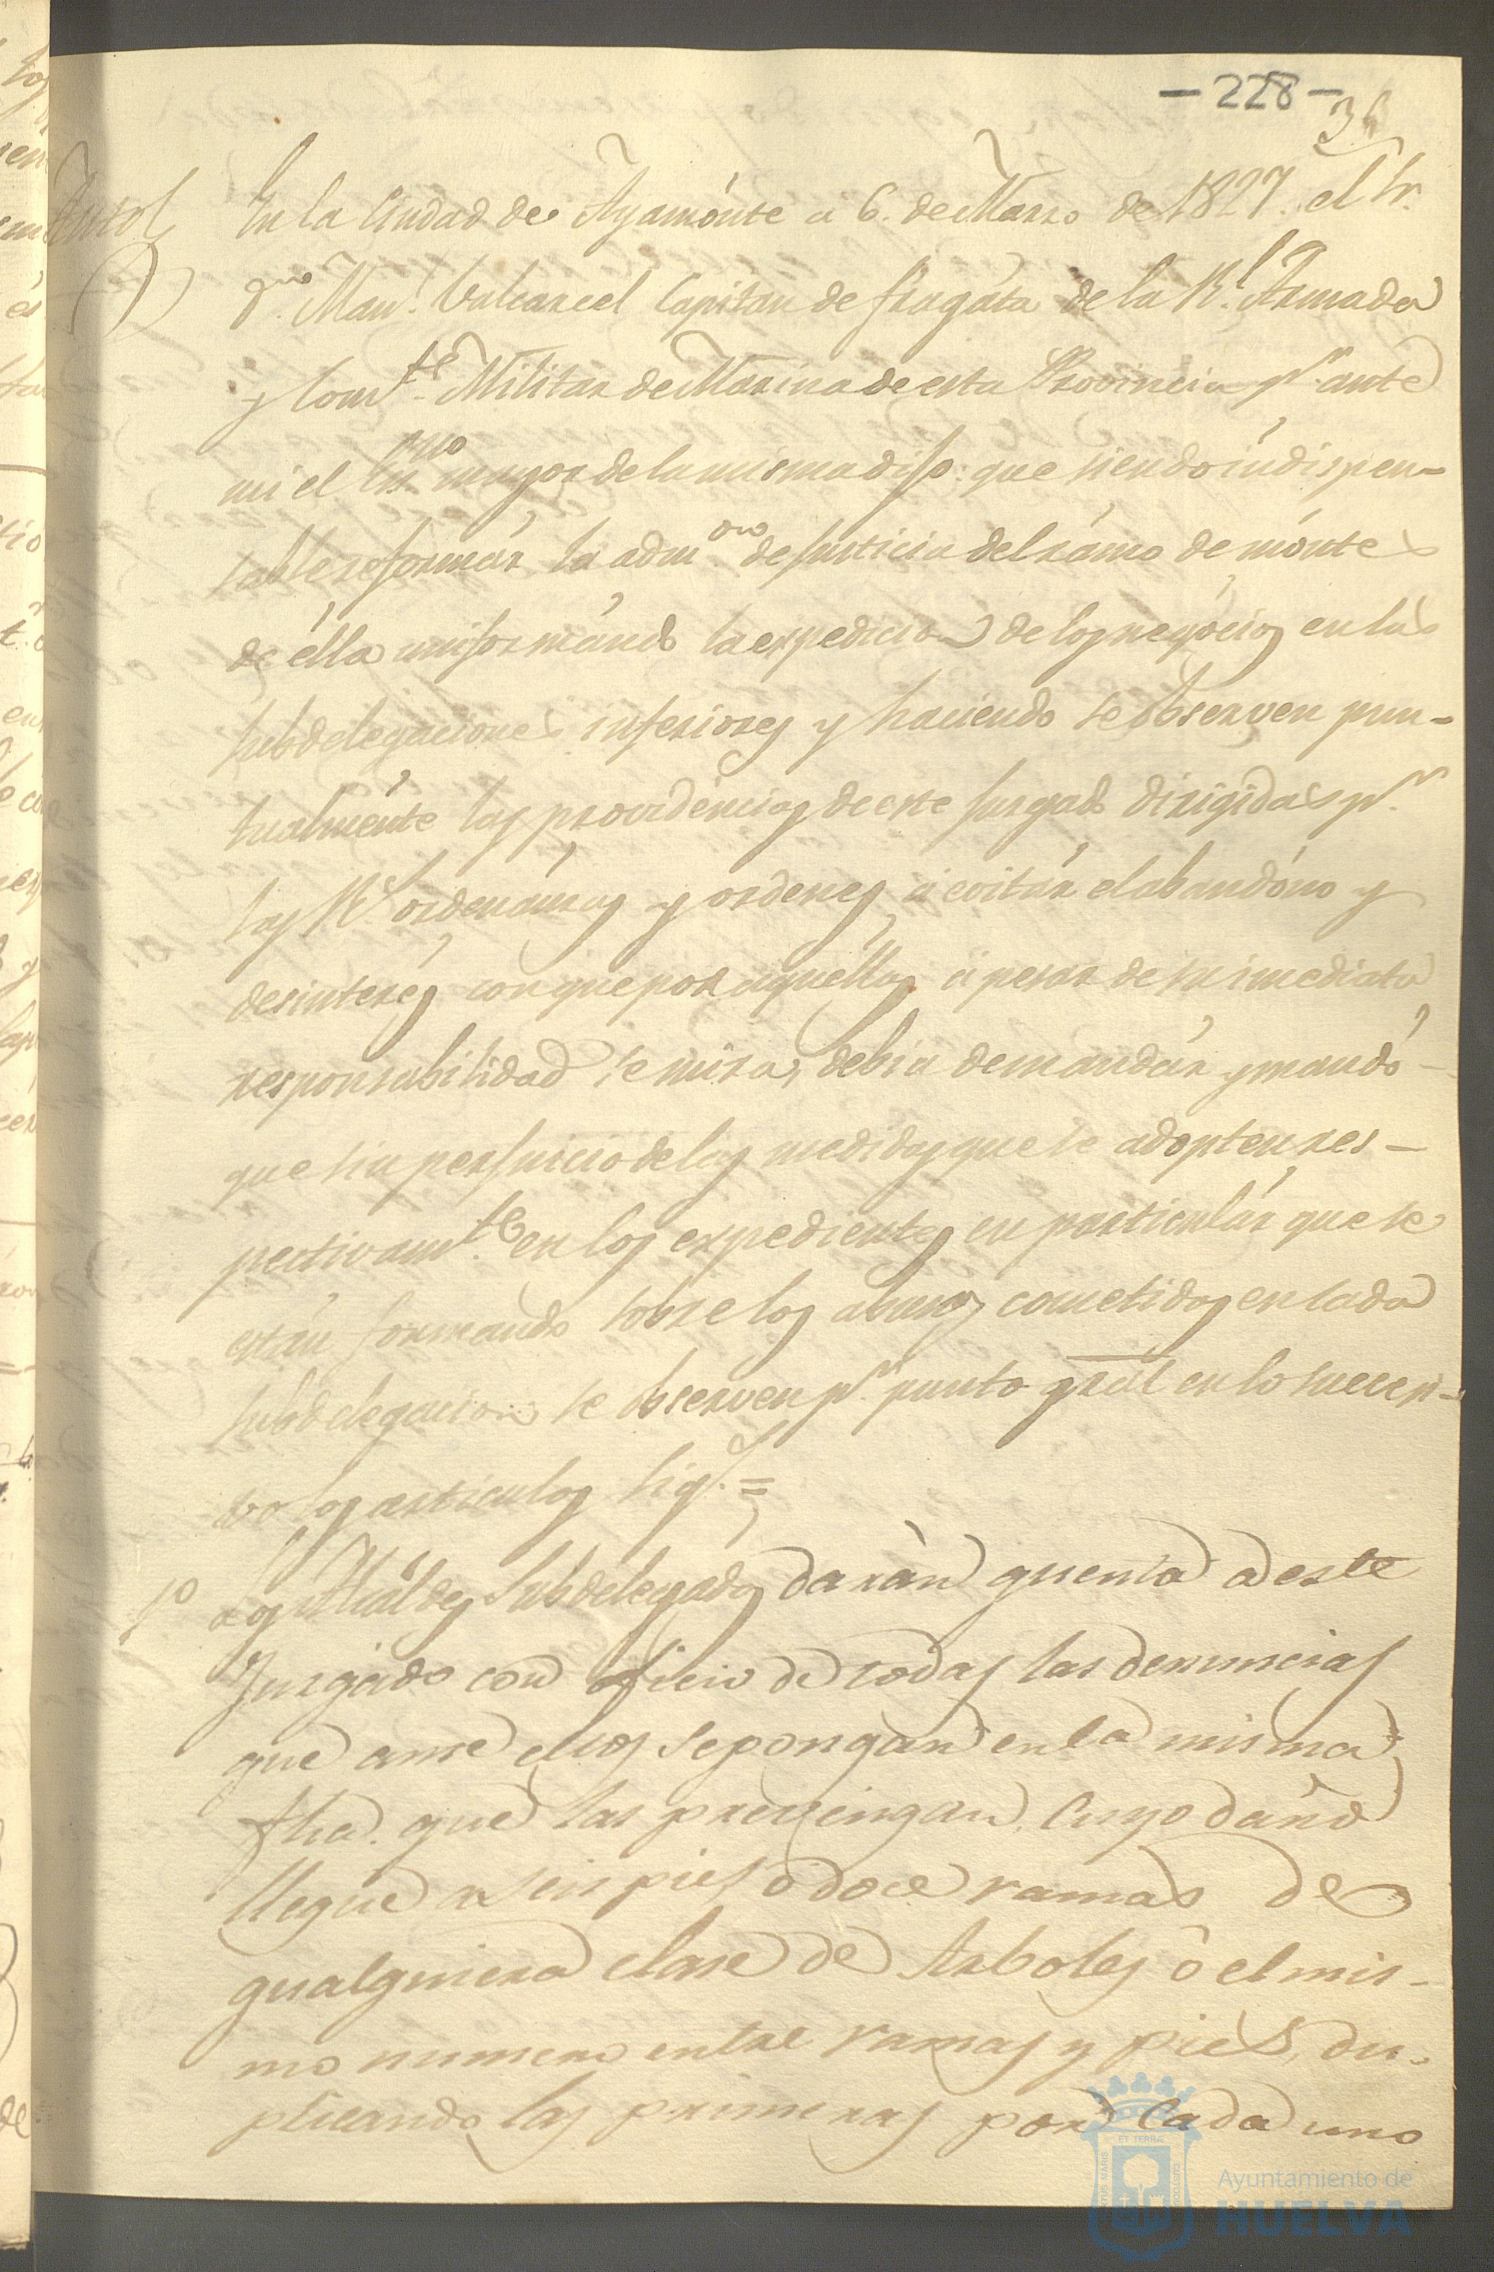 -228-
36
Auto
En la Ciudad de Ayamónte a 6. de Marzo de 1827. el Sr.
Dn. Manl. Valcarcel Capitan de fragáta de la Rl. Armada
y Comte. Militar de Marina de esta Provincia pr. ante
mi el Essno mayor de la misma dijo: que siendo indispen-
sable reformár la admon de Justicia del rámo de móntes
de élla uniformándo la expedicion de los negócios en las
subdelegaciones inferiores y haciendo se observen pun-
tualménte las providéncias de este Juzgado dirigidas pr.
las Rs. ordenánzas y ordenes á evitár el abandóno y
desinterés con que por aquéllas á pesar de su imediata
responsabilidad se mira, debia de mandár y mandó
que sin perjuicio de las medidas que se adopten res-
pectivamte. en los expedientes en particulár que se
están formando sobre los abusos cometidos en cada
subdelegacion se observen pr. punto gral en lo sucesi-
vo los articulos sigs. =
1º Los Alcáldes Subdelegados darán quenta a este
Juzgado con oficio de todas las denuncias
que ante ellos se pongan en la misma
fha. que las prevengan, Cuyo daño
llegue a seis pies ó doce ramas de
qualquiera clase de Arboles ó el mis-
mo numero entre ramas y pies, du-
plicando las primeras por cada uno
ET TERRAE
Ayuntamiento de
HUELVA